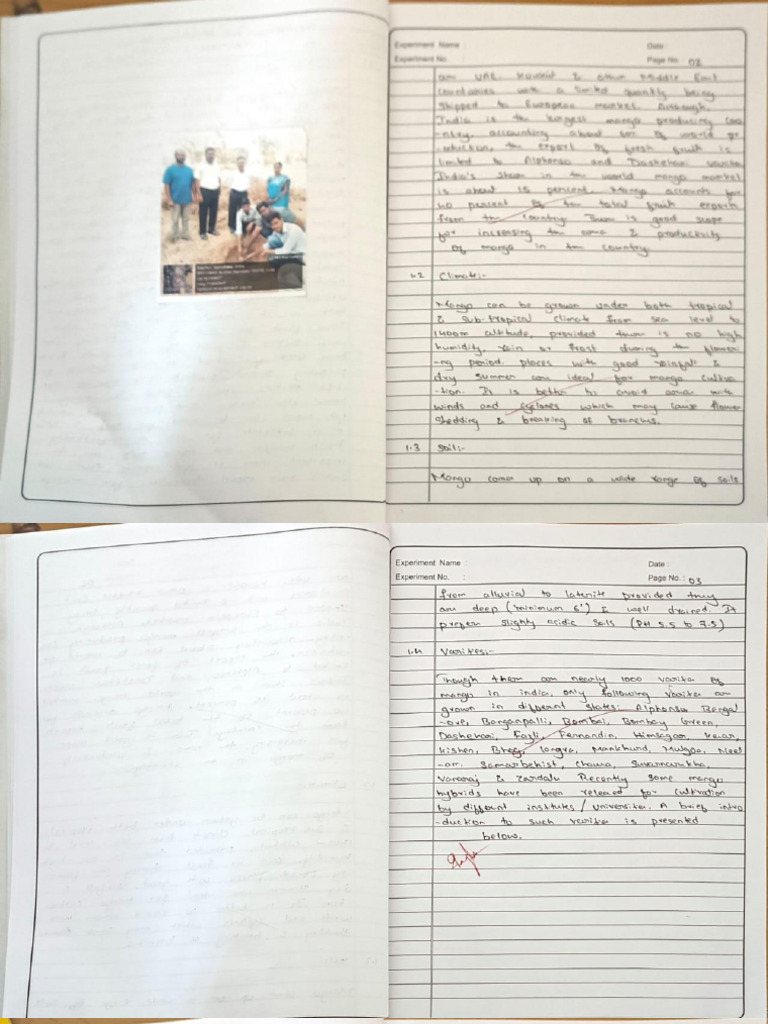 Experiment Name :
Date :
Experiment No. :
Page No. 02
are UAE, Kuwait & other Middle East
countaries with a limited quantity being
Shipped to European market. Although,
India is the largest mango producing cou
-ntry, accounting about of world pr
-oduction, the export of fresh fruit is
limited to Alphonso and Dashehari
India's Share in the world mango market
is about 15 percent. Mango accounts for
40 percent of the total fruit export
from the country. There is good scope
for increasing the & productivity
of mango in the country
1.2 Climate:-
Mango can be grown under both tropical
& sub-tropical climate from sea level to
1400m altitude, provided there is no high
humidity, rain or frost during the floweri
-ng period. places with good rainfall &
dry summer are ideal for mango cultiva
-tion. It is better to avoid area with
winds and cyclones which may cause flower
Shedding & breaking of branches.
1.3 Soil:-
Mango comes up on a wide range of soils
Experiment Name :
Date :
Experiment No. :
Page No. : 03
from alluvial to laterite provided they
are deep (minimum 6') & well drained. It
prefers slighty acidic soils (PH 5.5 to 7.5)
1.4 Varites:-
Though there are nearly 1000 of
mango in india, only following are
grown in different States: Alphonso Bangal
-ore, Banganpalli, Bombai, Bombay Green,
Dashehari, Fazli, Fernandin, Himsagar, Kesar,
Kishen, Langra, Mankhurd, Mulgoa, Neel
-am. Samarbehist, Chausa, Suvarnarekha,
Vanaraj & Zardalu Recently some mango
hybrids have been released for cultivation
by different institutes / A brief intro
-duction to such is presented
below.